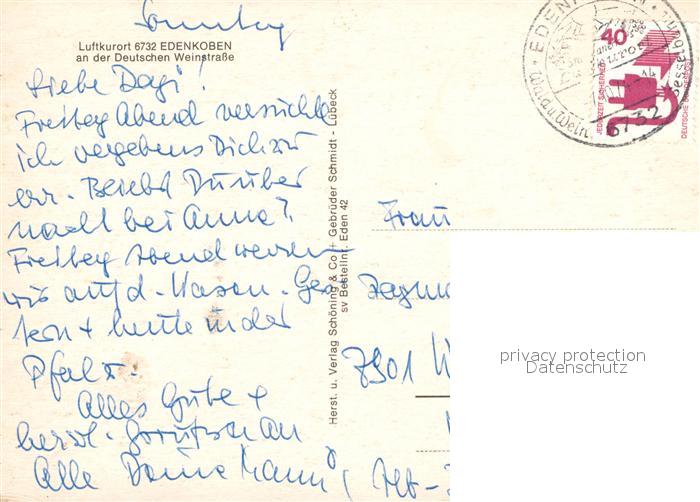 Sonntag
Luftkurort 6732 EDENKOBEN
an der Deutschen Weinstraße
Liebe Dagi!
Freitag Abend versuchte
ich vergebens Dich zu
err. Bliebst Du über
nacht bei Anne?
Freitag Abend waren
wir auf d. Wasen. Ges
tern + heute in der
Pfalz.
Alles Gute +
herzl. Grüße an
Alle Deine
Herst. u. Verlag Schöning & Co + Gebrüder Schmidt - Lübeck
sv Bestellnr. Eden 42
Frau
7901
40
JEDERZEIT SICHERHEIT
DEUTSCHE BUNDESPOST
EDENKOBEN
6732
privacy protection
Datenschutz